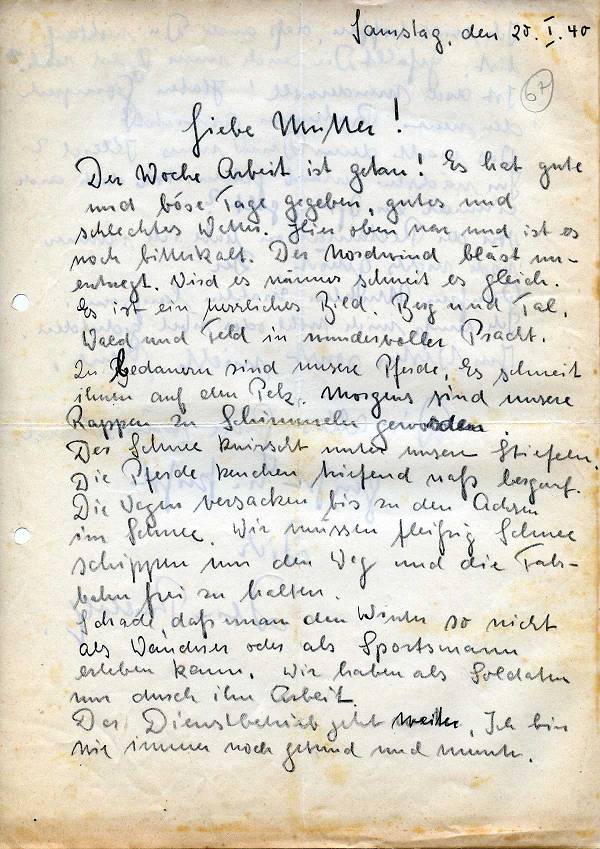 Samstag, den 20. I. 40
67
Liebe Mutter!
Der Woche Arbeit ist getan! Es hat gute
und böse Tage gegeben, gutes und
schlechtes Wetter. Hier oben war und ist es
noch bitterkalt. Der Nordwind bläst un-
entwegt. Wird es wärmer schneit es gleich.
Es ist ein herrliches Bild. Berg und Tal,
Wald und Feld in wundervoller Pracht.
Zu bedauern sind unsere Pferde. Es schneit
ihnen auf den Pelz. Morgens sind unsere
Rappen zu Schimmeln geworden.
Der Schnee knirscht unter unseren Stiefeln.
Die Pferde keuchen triefend naß bergauf.
Die Wagen versacken bis zu den Achsen
im Schnee. Wir müssen fleißig Schnee
schippen um den Weg und die Fahr-
bahn frei zu halten.
Schade, daß man den Winter so nicht
als Wanderer oder als Sportsmann
erleben kann. Wir haben als Soldaten
nur durch ihn Arbeit.
Der Dienstbetrieb geht weiter. Ich bin
wie immer noch gesund und munter.